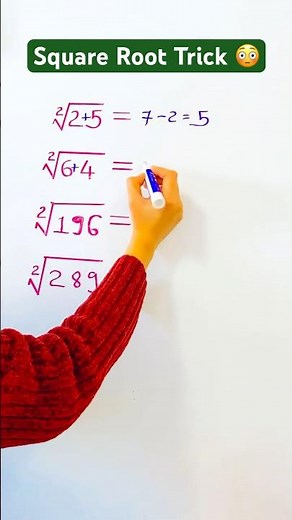 Square Root Trick 😳
²√2+5 = 7-2=5
²√6+4 =
²√196 =
²√289